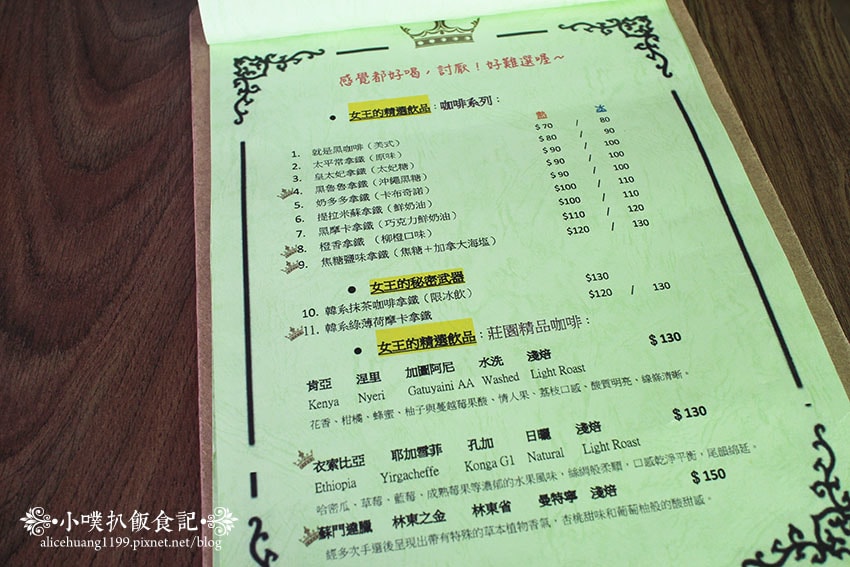 感覺都好喝，討厭！好難選喔~
● 女王的精選飲品：咖啡系列： 熱 冰
1. 就是黑咖啡（美式） $70 / 80
2. 太平常拿鐵（原味） $80 / 90
3. 皇太妃拿鐵（太妃糖） $90 / 100
4. 黑魯魯拿鐵（沖繩黑糖） $90 / 100
5. 奶多多拿鐵（卡布奇諾） $90 / 100
6. 提拉米蘇拿鐵（鮮奶油） $100 / 110
7. 黑摩卡拿鐵（巧克力鮮奶油） $100 / 110
8. 橙香拿鐵 （柳橙口味） $110 / 120
9. 焦糖鹽味拿鐵（焦糖＋加拿大海塩） $120 / 130
● 女王的秘密武器
10. 韓系抹茶咖啡拿鐵（限冰飲） $130
11. 韓系綠薄荷摩卡拿鐵 $120 / 130
● 女王的精選飲品：莊園精品咖啡：
肯亞 涅里 加圖阿尼 水洗 淺焙 $ 130
Kenya Nyeri Gatuyaini AA Washed Light Roast
花香、柑橘、蜂蜜、柚子與蔓越莓果酸、情人果、荔枝口感、酸質明亮、線條清晰。
衣索比亞 耶加雪菲 孔加 日曬 淺焙 $ 130
Ethiopia Yirgacheffe Konga G1 Natural Light Roast
哈密瓜、草莓、藍莓、成熟莓果等濃郁的水果風味，絲綢般柔順，口感乾淨平衡，尾韻綿延。
蘇門達臘 林東之金 林東省 曼特寧 淺焙 $ 150
經多次手選後呈現出帶有特殊的草本植物香氣，杏桃甜味和葡萄柚般的酸甜感。
小噗扒飯食記
alicehuang1199.pixnet.net/blog